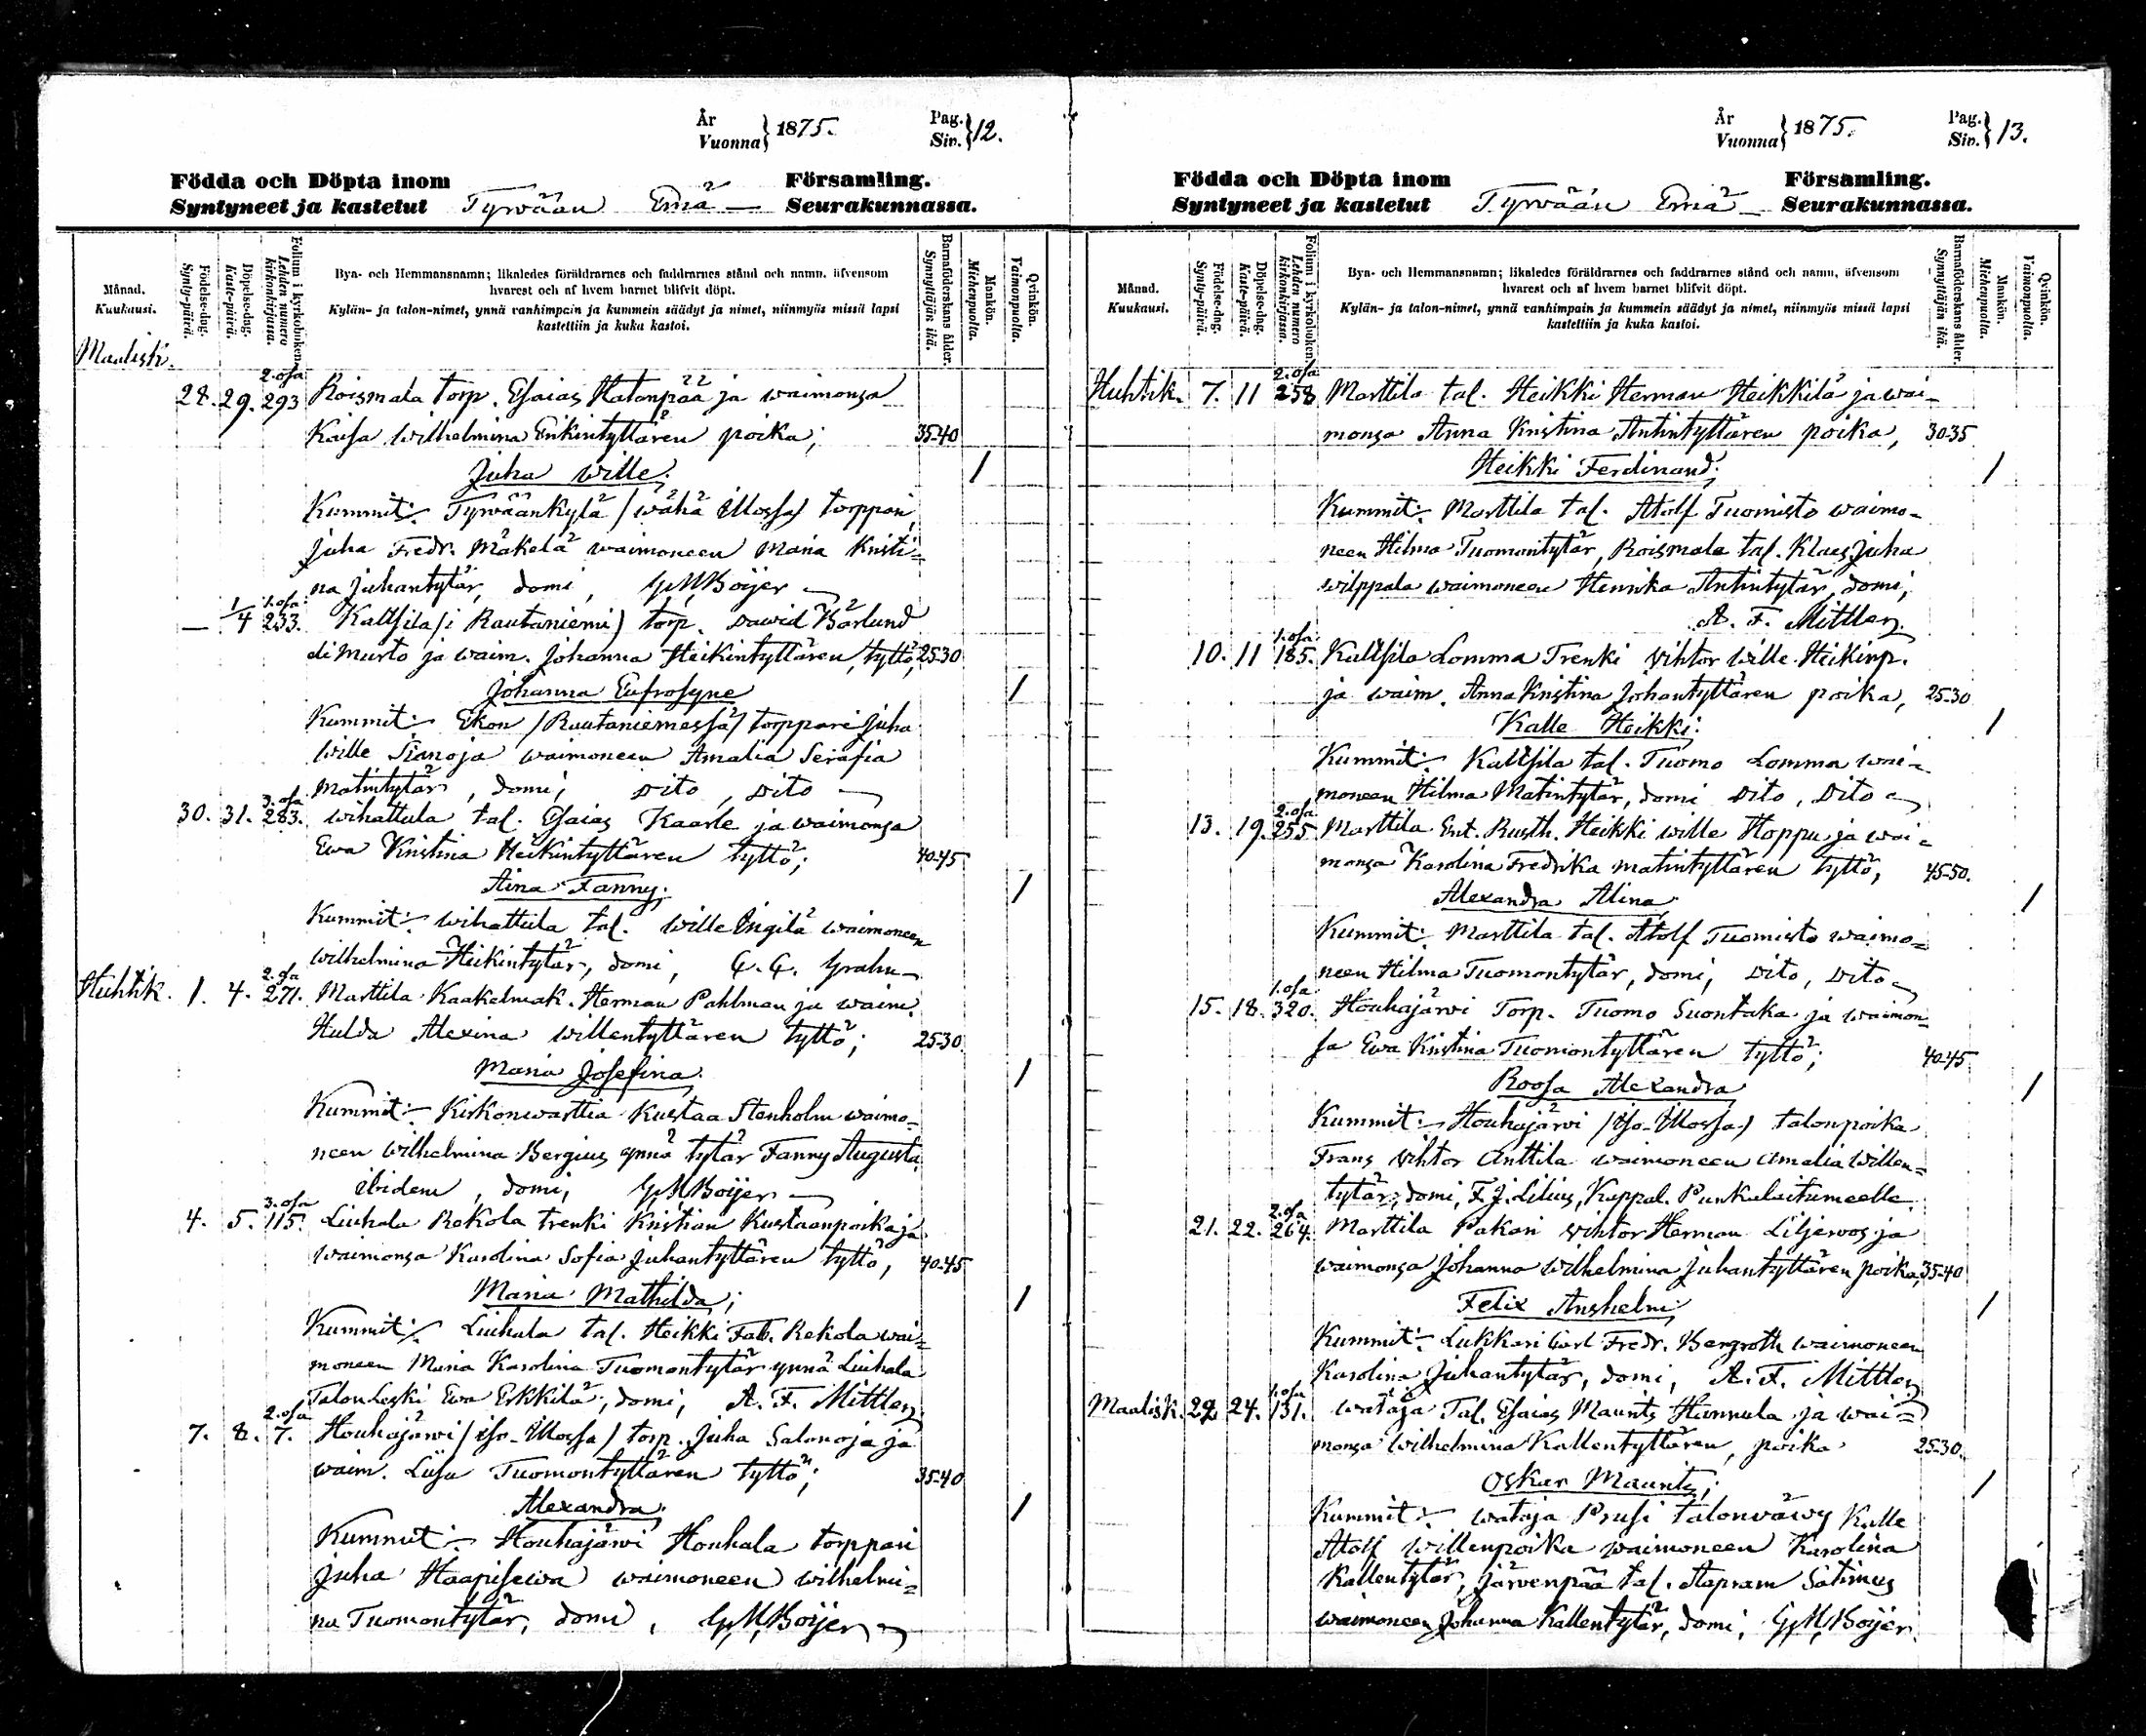 År
Vuonna } 1875.
Pag.
Siv. } 12.
Födda och Döpta inom
Församling.
Syntyneet ja kastetut Tyrvään Emä — Seurakunnassa.
Månad.
Kuukausi.
Födelse-dag.
Synty-päivä.
Döpelse-dag.
Kaste-päivä.
Folium i kyrkoboken.
Lehden numero kirkonkirjassa.
Bya- och Hemmansnamn; likaledes föräldrarnes och faddrarnes stånd och namn, äfvensom
hvarest och af hvem barnet blifvit döpt.
Kylän- ja talon-nimet, ynnä vanhimpain ja kummein säädyt ja nimet, niinmyös missä lapsi
kastettiin ja kuka kastoi.
Barnaföderskans ålder.
Synnyttäjän ikä.
Mankön.
Miehenpuolta.
Qvinkön.
Vaimonpuolta.
Maalisk.
28. 29. 2. osa 293 Roismala torp. Esaias Hatanpää ja waimonsa
Kaisa Wilhelmina Erikintyttären poika; 35-40
Juha Wille; /
Kummit:- Tyrväänkylä (wähä Ulossa) torppari
Juha Fredr. Mäkelä waimoneen Maria Kristi=
na Juhantytär, domi, G. M. Boijer
— 1/4 1. osa 233. Kaltsila (i Rautaniemi) torp. Dawid Bärlund
eli Murto ja waim. Johanna Heikintyttären, tyttö, 25-30
Johanna Eufrosyne /
Kummit:- Ekon (Rautaniemessä) torppari Juha
Wille Sianoja waimoneen Amalia Serafia
Matintytär, domi; Dito, Dito
30. 31. 3. osa 283. Wihattula tal. Esaias Kaarle ja waimonsa
Ewa Kristina Heikintyttären tyttö; 40-45
Aina Fanny. /
Kummit:- Wihattula tal. Wille Ingilä waimoneen
Wilhelmina Heikintytär, domi, G. G. Grahn
Huhtik. 1. 4. 2. osa 271. Marttila Kaakelmak. Herman Pahlman ja waim.
Hulda Alexina Willentyttären tyttö; 25-30.
Maria Josefina. /
Kummit:- Kirkonwarttia Kustaa Stenholm waimo=
neen Wilhelmina Bergius ynnä tytär Fanny Augusta
ibidem, domi, G. M. Boijer
4. 5. 3. osa 115. Liuhala Rekola trenki Kristian Kustaanpoika ja
waimonsa Karolina Sofia Juhantyttären tyttö, 40-45
Maria Mathilda; /
Kummit:- Liuhala tal. Heikki Fab. Rekola wai=
moneen Maria Karolina Tuomontytär ynnä Liuhala
Talon leski Ewa Erkkilä; domi, A. F. Mittler
7. 8. 2. osa 7. Houhajärwi (iso-Ulossa) torp. Juha Salonoja ja
waim. Liisa Tuomontyttären tyttö; 35-40
Alexandra. /
Kummit:- Houhajärwi Houhala torppari
Juha Haapisewa waimoneen Wilhelmi=
na Tuomontytär, domi, G. M. Boijer
År
Vuonna } 1875.
Pag.
Siv. } 13.
Födda och Döpta inom
Församling.
Syntyneet ja kastetut Tyrvään Emä — Seurakunnassa.
Månad.
Kuukausi.
Födelse-dag.
Synty-päivä.
Döpelse-dag.
Kaste-päivä.
Folium i kyrkoboken.
Lehden numero kirkonkirjassa.
Bya- och Hemmansnamn; likaledes föräldrarnes och faddrarnes stånd och namn, äfvensom
hvarest och af hvem barnet blifvit döpt.
Kylän- ja talon-nimet, ynnä vanhimpain ja kummein säädyt ja nimet, niinmyös missä lapsi
kastettiin ja kuka kastoi.
Barnaföderskans ålder.
Synnyttäjän ikä.
Mankön.
Miehenpuolta.
Qvinkön.
Vaimonpuolta.
Huhtik. 7. 11 2. osa 258 Marttila tal. Heikki Herman Heikkilä ja wai=
monsa Anna Kristina Antintyttären poika, 30-35
Heikki Ferdinand; /
Kummit:- Marttila tal. Atolf Tuomisto waimo=
neen Hilma Tuomontytär, Roismala tal. Klaes Juha
Wilppala waimoneen Henrika Antintytär, domi;
A. F. Mittler.
10. 11 1. osa 185. Kaltsila Lomma Trenki Vihtor Wille Heikinp.
ja waim. Anna Kristina Johantyttären poika, 25-30
Kalle Heikki: /
Kummit:- Kaltsila tal. Tuomo Lomma wai=
moneen Hilma Matintytär, domi Dito, Dito
13. 19. 2. osa 255 Marttila Ent. Rusth. Heikki Wille Hoppu ja wai=
monsa Karolina Fredrika Matintyttären tyttö, 45-50.
Alexandra Alina /
Kummit: Marttila tal. Atolf Tuomisto waimo=
neen Hilma Tuomontytär, domi; Dito, Dito
15. 18. 1. osa 320. Houhajärwi Torp. Tuomo Suontaka ja waimon=
sa Ewa Kristina Tuomontyttären tyttö; 40-45
Roosa Alexandra /
Kummit:- Houhajärwi (iso-Ulossa) talonpoika
Frans Vihtor Anttila waimoneen Amalia Willen=
tytär, domi, F. J. Lilius, Kappal. Punkalaitumeella.
21. 22. 2. osa 264 Marttila Pakari Vihtor Herman Liljeroos ja
waimonsa Johanna Wilhelmina Juhantyttären poika, 35-40
Felix Anshelm; /
Kummit:- Lukkari Carl Fredr. Bergroth waimoneen
Karolina Juhantytär, domi, A. F. Mittler
Maalisk. 22. 24. 1. osa 131. Wataja Tal. Esaias Maurits Hannula ja wai=
monsa Wilhelmina Kallentyttären, poika 25-30.
Oskar Maurits; /
Kummit:- Wataja Prusi talonwäwy Kalle
Atolf Willenpoika waimoneen Karolina
Kallentytär, Järwenpää tal. Aapram Sätimus
waimoneen Johanna Kallentytär, domi, G. M. Boijer.